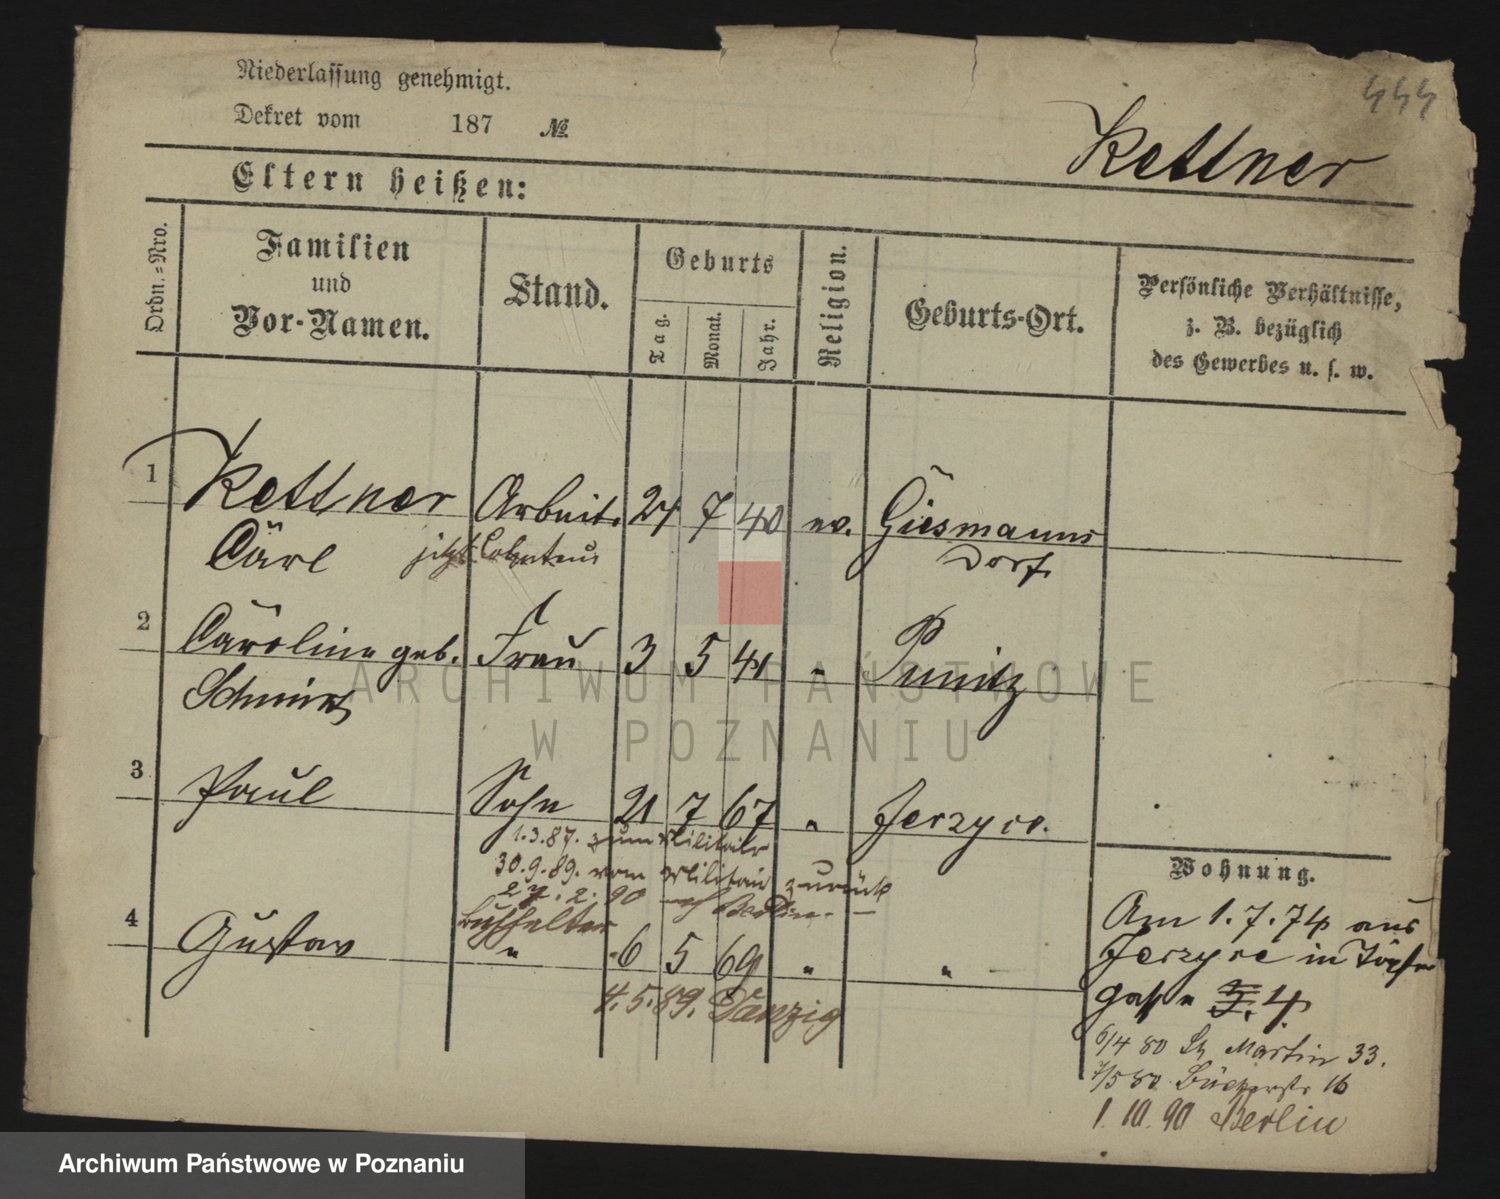 Niederlassung genehmigt.
Dekret vom 187 №
444
Kettner
Eltern heißen:
Ordn.=Nro.
Familien und Vor-Namen.
Stand.
Geburts
Tag.
Monat.
Jahr.
Religion.
Geburts-Ort.
Persönliche Verhältnisse,
z. B. bezüglich
des Gewerbes u. s. w.
1 Kettner Arbeit. 24 7 40 ev. Giesmanns
Carl jetzt dorf
2 Caroline geb. Frau 3 5 41 " Punitz
Schmidt
3 Paul Sohn 21 7 67 " Jerzyce.
1.3.87. zum Militair
30.9.89. vom Militair zurück
27.2.90 Berlin.
Buchhalter
4 Gustav " 6 5 69 " "
4.5.89. Danzig
Wohnung.
Am 1.7.74 aus
Jerzyce in Töpfer
gasse 3. 4
6/4 80 St Martin 33.
7/5 80 Bäckerstr 16
1.10.90 Berlin
ARCHIWUM PAŃSTWOWE
W POZNANIU
Archiwum Państwowe w Poznaniu